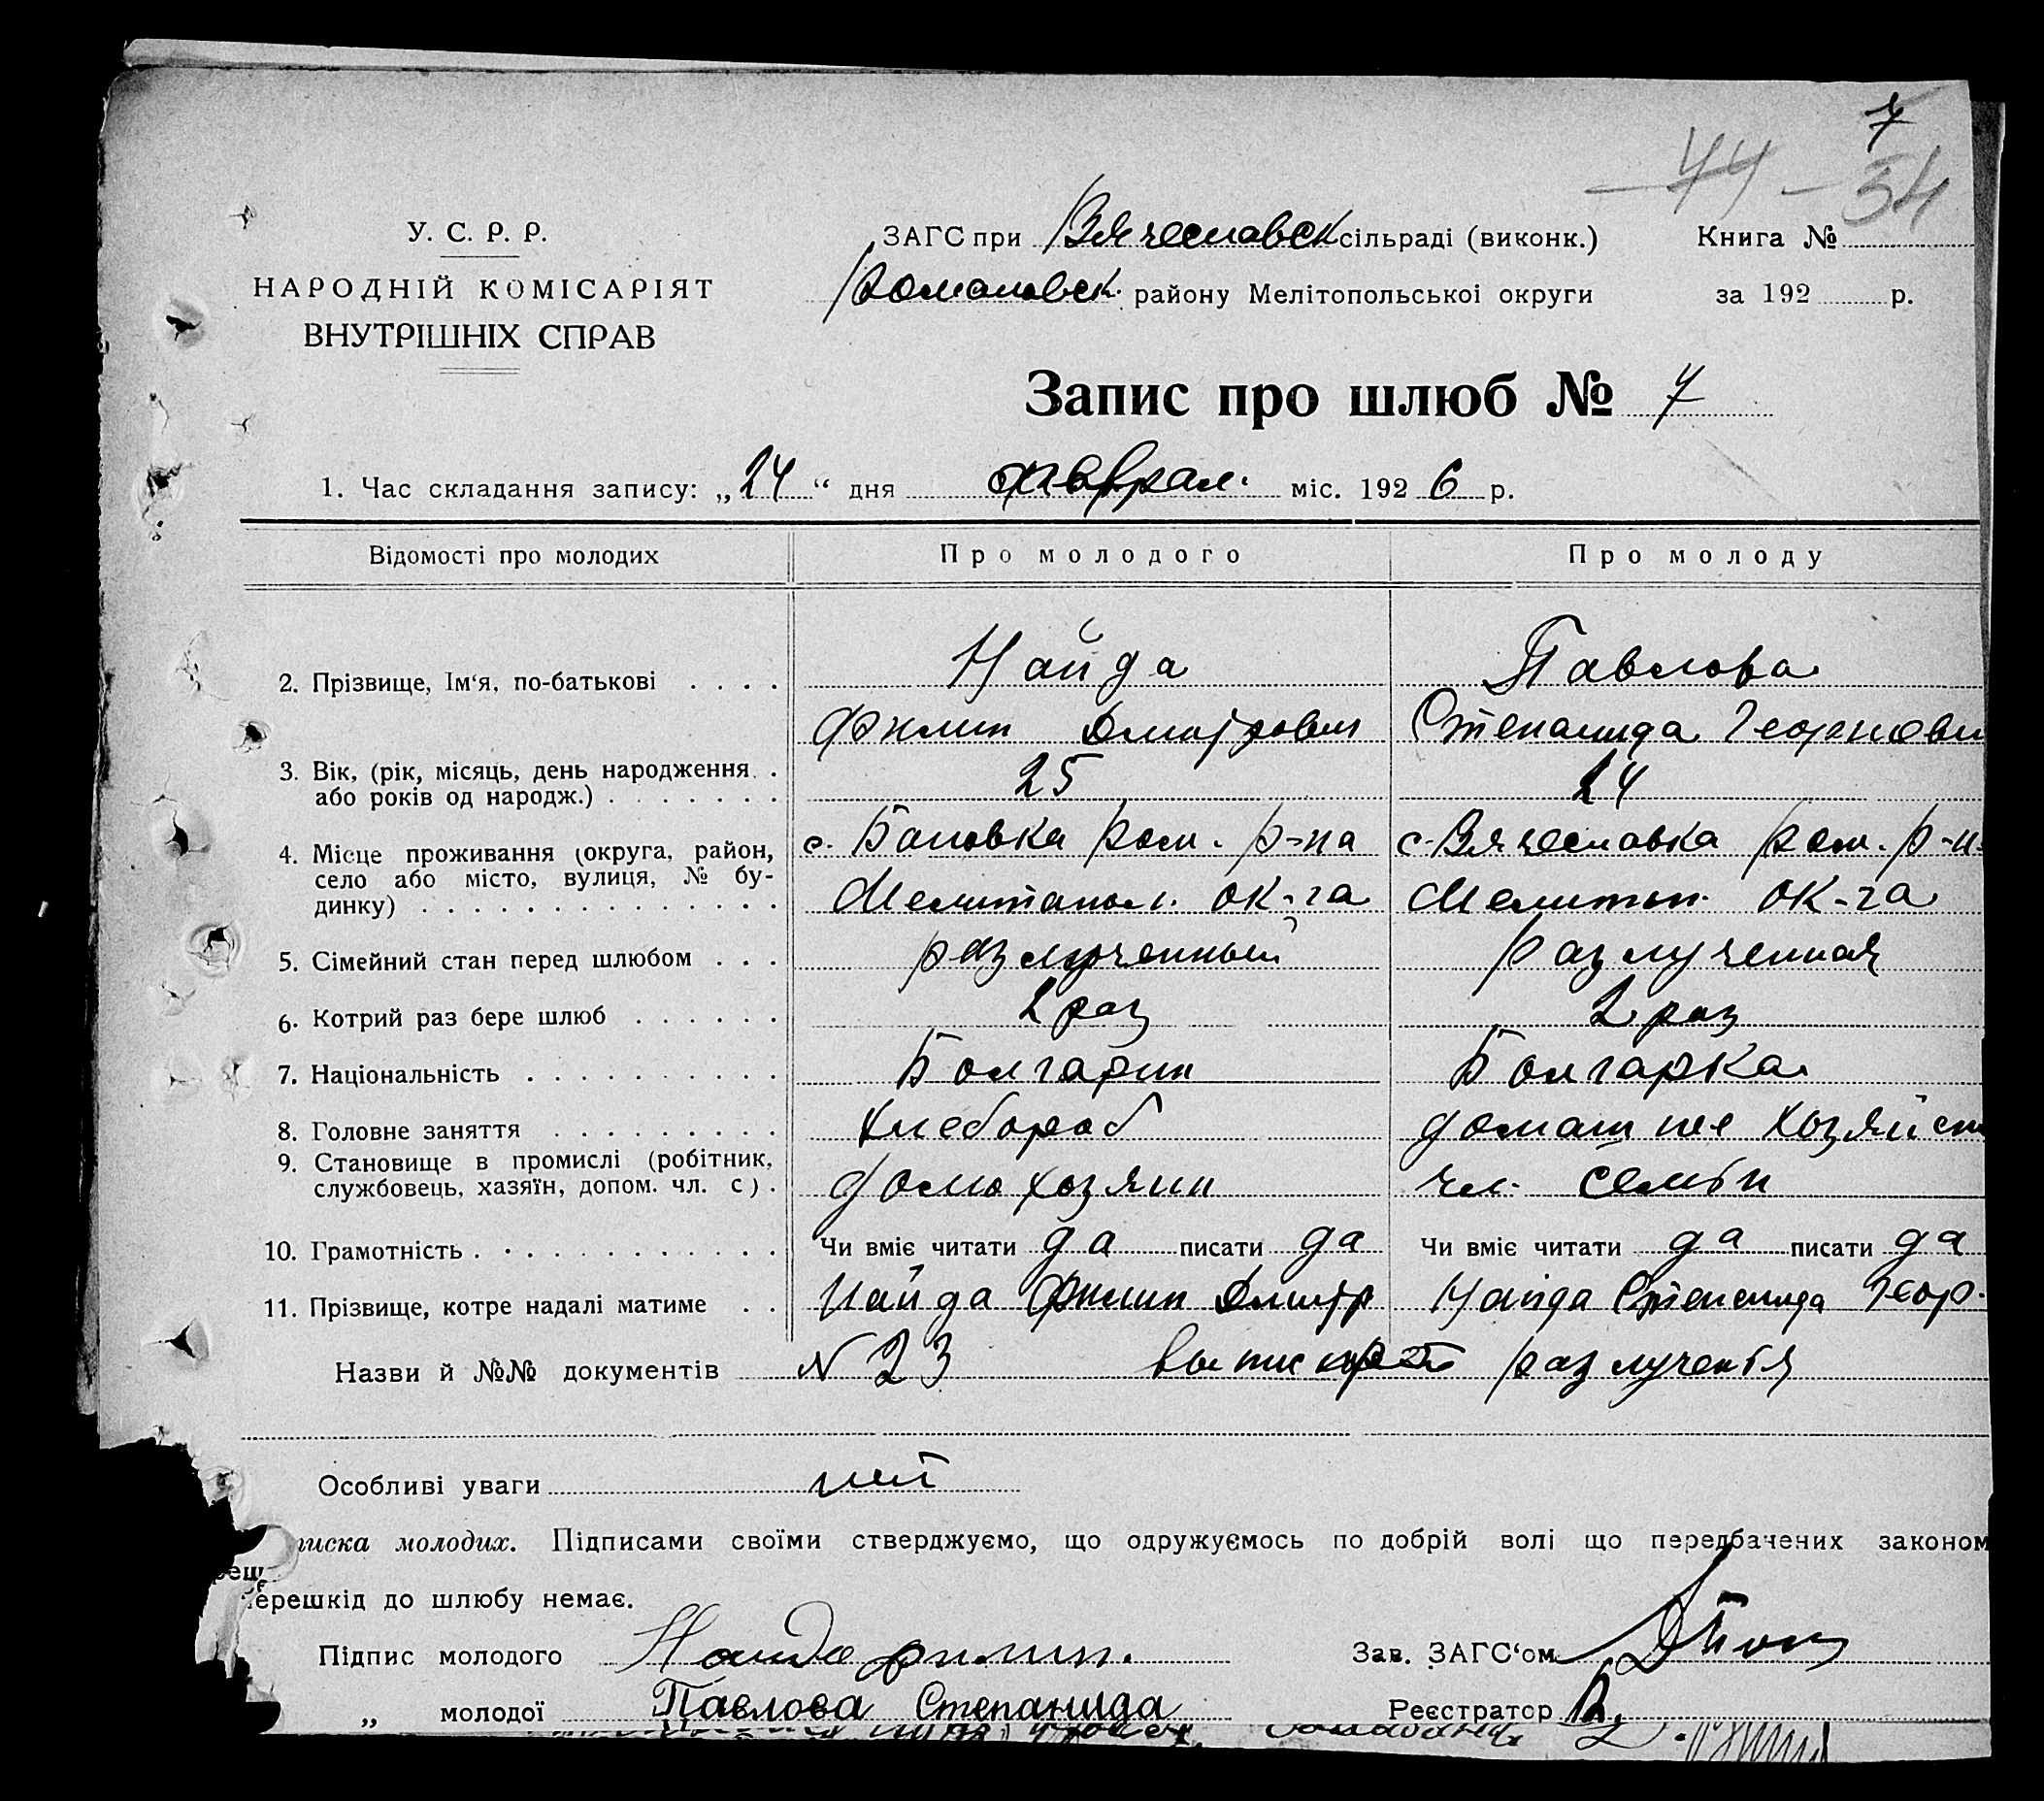 7
44 - 34
У. С. Р. Р.
НАРОДНІЙ КОМІСАРІЯТ
ВНУТРІШНІХ СПРАВ
ЗАГС при Вячеславск сільраді (виконк.) Книга №
Романовск. району Мелітопольської округи за 192 р.
Запис про шлюб № 7
1. Час складання запису: „24“ дня феврал. міс. 1926 р.
Відомості про молодих Про молодого Про молоду
2. Прізвище, Ім‘я, по-батькові Найда Павлова
Филип Дмитрович Степанида Георгиевн
3. Вік, (рік, місяць, день народження 25 24
або років од народж.)
4. Місце проживання (округа, район, с. Бановка Ром. р-на с. Вячеславка Ром. р-н
село або місто, вулиця, № бу-
динку) Мелитопол. ок-га Мелитоп. ок-га
5. Сімейний стан перед шлюбом разлученный разлученная
6. Котрий раз бере шлюб 2 раз 2 раз
7. Національність Болгарин Болгарка
8. Головне заняття хлебороб домашнее хозяйст
9. Становище в промислі (робітник,
службовець, хазяїн, допом. чл. с). домохозяин чл. семьи
10. Грамотність Чи вміє читати да писати да Чи вміє читати да писати да
11. Прізвище, котре надалі матиме Найда Филип Дмитр Найда Степанида Геор.
Назви й №№ документів N 23 разлученья
Особливі уваги нет
писка молодих. Підписами своїми стверджуємо, що одружуємось по добрій волі що передбачених законом
ерешкід до шлюбу немає.
Підпис молодого Найда Филип. Зав. ЗАГС‘ом
„ молодої Павлова Степанида Реєстратор